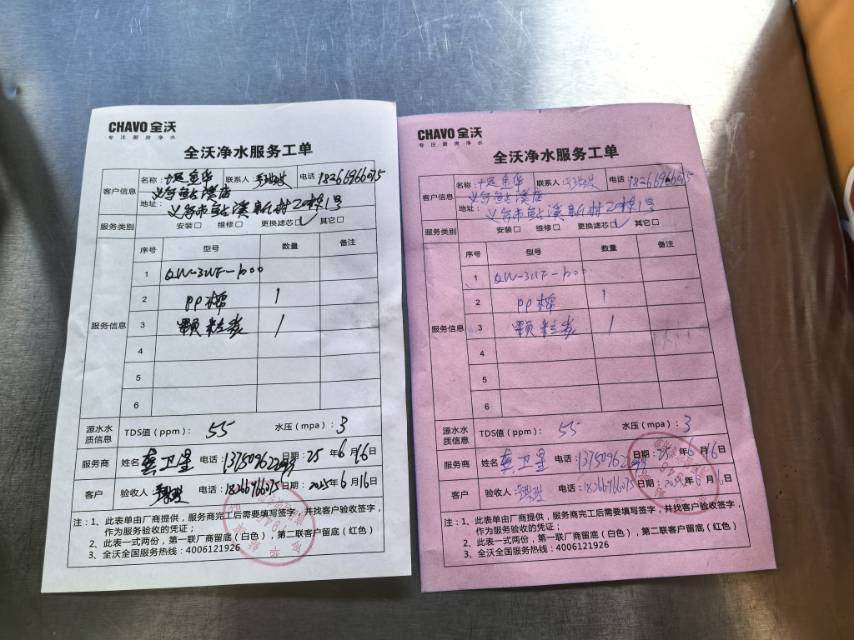 CHAVO 全沃
专注厨房净水
全沃净水服务工单
客户信息 名称: 联系人 电话
义乌鱼大溪店
地址: 义乌市鱼大溪新村20栋1号
服务类别 安装□ 维修□ 更换滤芯□✓ 其它□
服务信息 序号 型号 数量 备注
1 QW-3UF-1000
2 PP棉 1
3 颗粒炭 1
4
5
6
源水水质信息 TDS值(ppm): 55 水压(mpa): 3
服务商 姓名 龚卫星 电话: 日期: 25 年 6 月 16 日
客户 验收人 电话: 日期: 2025 年 6 月 16 日
注: 1、此表单由厂商提供,服务商完工后需要填写签字,并找客户验收签字,
作为服务验收的凭证;
2、此表一式两份,第一联厂商留底(白色),第二联客户留底(红色)
3、全沃全国服务热线:4006121926
CHAVO 全沃
专注厨房净水
全沃净水服务工单
客户信息 名称: 联系人 电话
义乌鱼大溪店
地址: 义乌市鱼大溪新村20栋1号
服务类别 安装□ 维修□ 更换滤芯□✓ 其它□
服务信息 序号 型号 数量 备注
1 QW-3UF-1000
2 PP棉 1
3 颗粒炭 1
4
5
6
源水水质信息 TDS值(ppm): 55 水压(mpa): 3
服务商 姓名 龚卫星 电话: 日期: 25 年 6 月 16 日
客户 验收人 电话: 日期: 2025 年 6 月 16 日
注: 1、此表单由厂商提供,服务商完工后需要填写签字,并找客户验收签字,
作为服务验收的凭证;
2、此表一式两份,第一联厂商留底(白色),第二联客户留底(红色)
3、全沃全国服务热线:4006121926